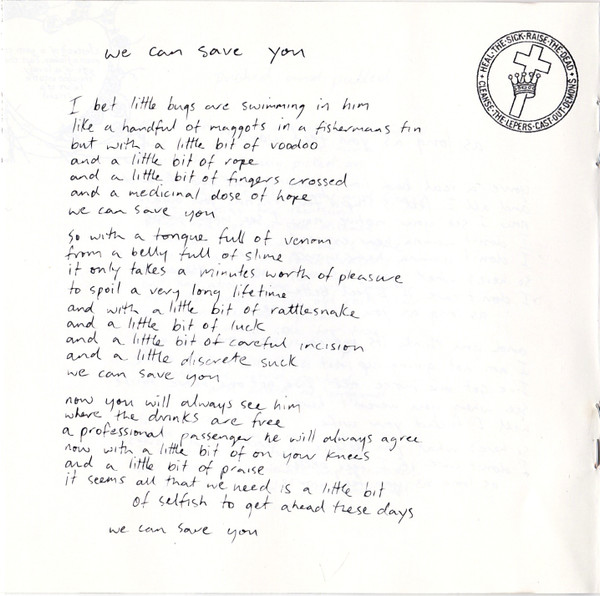 we can save you
HEAL·THE·SICK·RAISE·THE·DEAD·
CLEANSE·THE·LEPERS·CAST·OUT·DEMONS
I bet little bugs are swimming in him
like a handful of maggots in a fishermans tin
but with a little bit of voodoo
and a little bit of rope
and a little bit of fingers crossed
and a medicinal dose of hope
we can save you
so with a tongue full of venom
from a belly full of slime
it only takes a minutes worth of pleasure
to spoil a very long lifetime
and with a little bit of rattlesnake
and a little bit of luck
and a little bit of careful incision
and a little discrete suck
we can save you
now you will always see him
where the drinks are free
a professional passenger he will always agree
now with a little bit of on your knees
and a little bit of praise
it seems all that we need is a little bit
of selfish to get ahead these days
we can save you